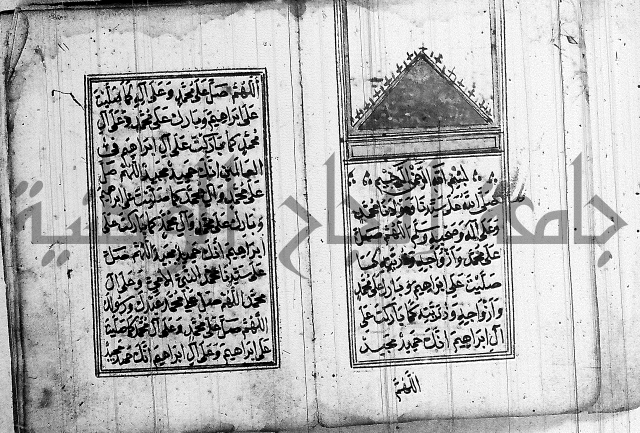 بسم الله الرحمن الرحيم
صلى الله على سيدنا ومولانا محمد
وعلى آله وصحبه وسلم اللهم صل
على محمد وأزواجه وذريته كما
صليت على ابراهيم وبارك على محمد
وأزواجه وذريته كما باركت على
آل ابراهيم انك حميد مجيد
اللهم
اللهم صل على محمد وعلى آله كما صليت
على ابراهيم وبارك على محمد وعلى آل
محمد كما باركت على آل ابراهيم في
العالمين انك حميد مجيد اللهم صل
على محمد وآل محمد كما صليت على ابراهيم
وبارك على محمد وآل محمد كما باركت على
ابراهيم انك حميد مجيد اللهم صل
على سيدنا محمد النبي الامي وعلى آل
محمد اللهم صل على محمد عبدك ورسولك
اللهم صل على محمد وعلى آل محمد كما صليت
على ابراهيم وعلى آل ابراهيم انك حميد مجيد
جامعة النجاح الوطنية